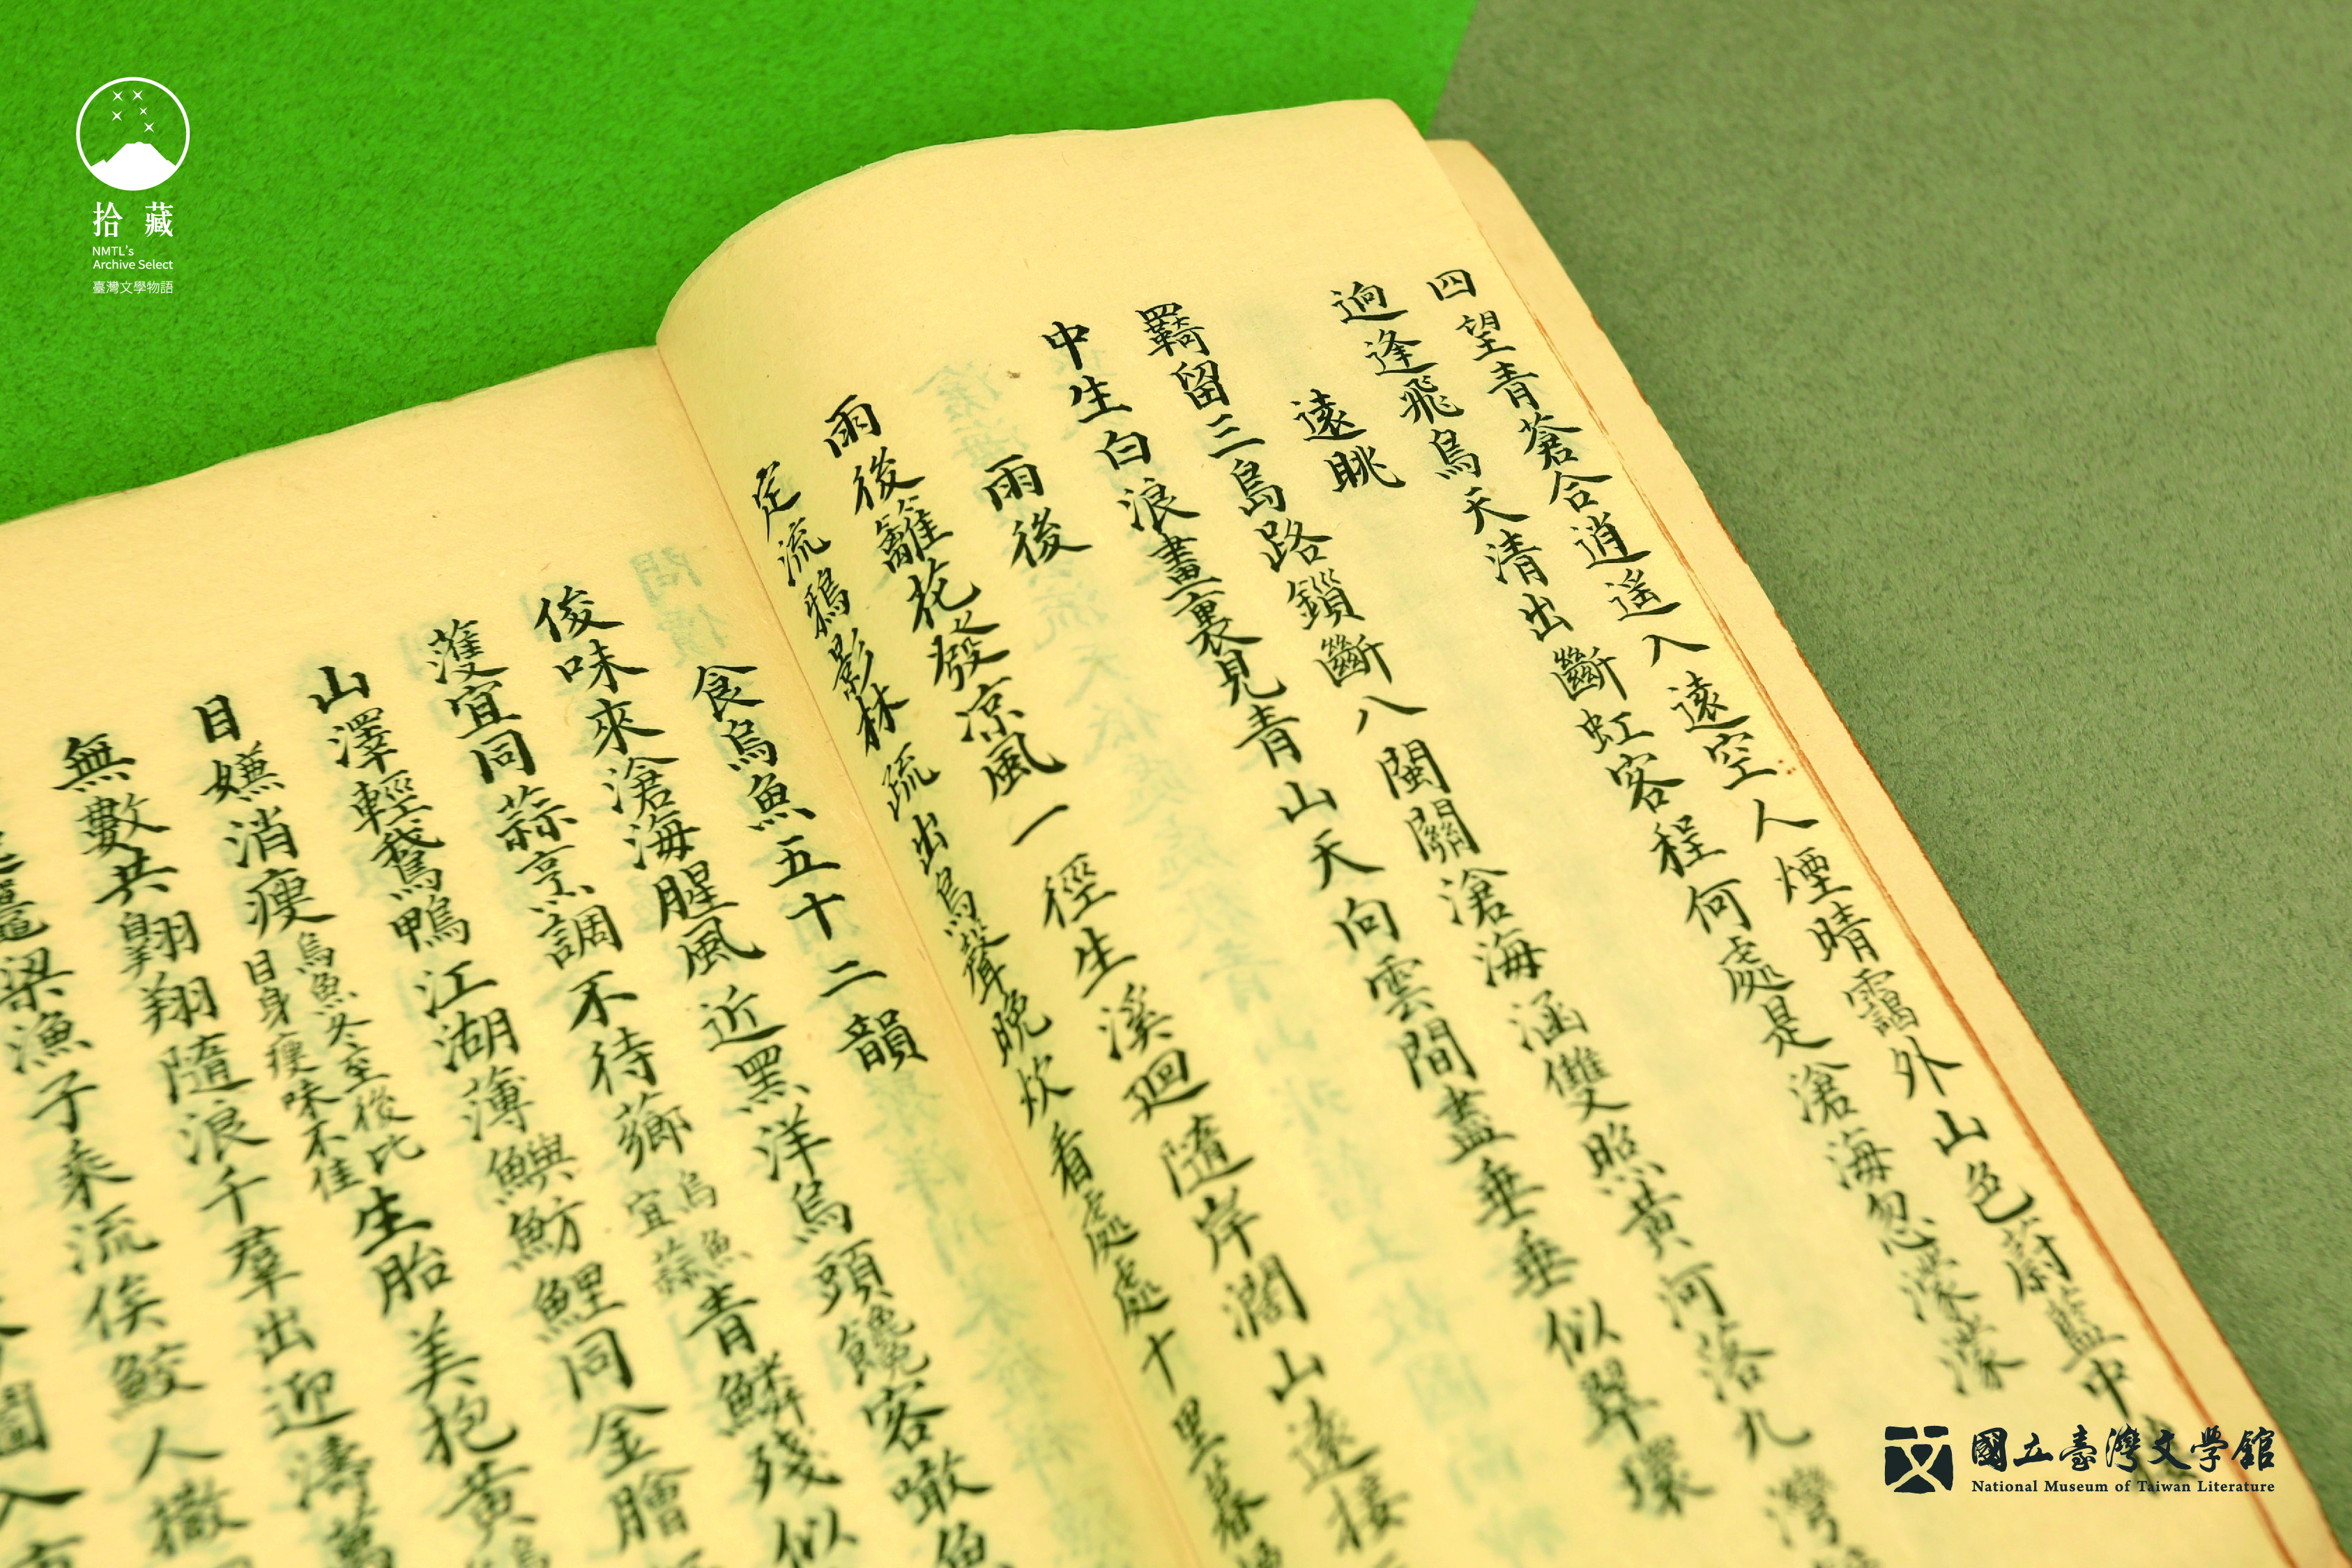 拾藏
NMTL's
Archive Select
臺灣文學物語
四望青蒼合逍遙入遠空人煙晴靄外山色蔚藍中
逈逢飛鳥天清出斷虹客程何處是滄海忽濛濛
遠眺
羇留三島路鎖斷八閩關滄海涵雙照黃河落九灣
中生白浪畫裏見青山天向雲間盡垂垂似翠環
雨後
雨後籬花之發涼風一徑生溪廻隨岸濶山遠接
定流鴉影林疏出鳥聲晚炊看處處十里暮
食烏魚五十二韻
俊味來滄海腥風近黑洋烏頭饞客噉魚
蒦宜同蒜烹調不待薌烏魚宜蒜青鱗殘似
山澤輕鵞鴨江湖薄鱮魴鯉同金膾
目嫌消瘦烏魚冬至後比目身瘦味不佳生胎美抱黃
無數共翺翔隨浪千羣出迎濤萬
梁漁子乘流俟鮫人撒
圖入
國立臺灣文學館
National Museum of Taiwan Literature